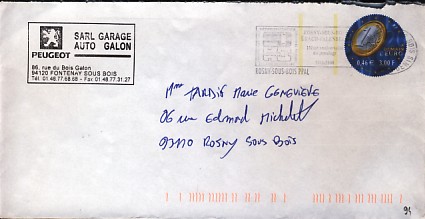 SARL GARAGE
AUTO GALON
PEUGEOT
86, rue du Bois Galon
94120 FONTENAY SOUS BOIS
Tél. 01.48.77.68.68 - Fax 01.48.77.31.27
ROSNY-SOUS-BOIS PPAL
0,46 € 3,00 F
Mme TARDIF Marie Geneviève
06 rue Edmond Michelet
93110 Rosny Sous Bois
94